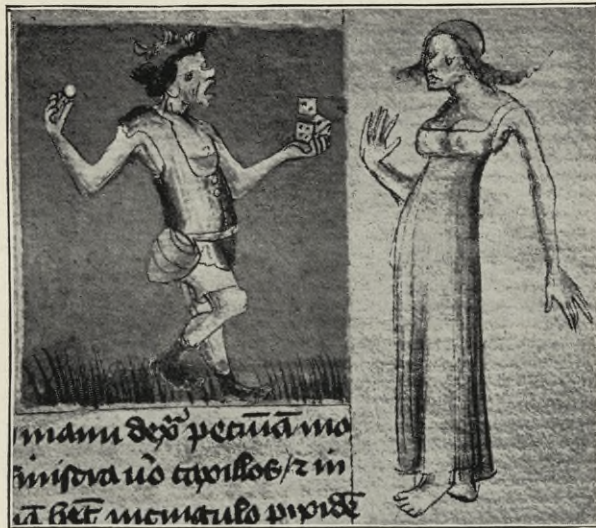 manu dext̄ pecuniā mo
sinistra uo taxillos / ⁊ in
het in cingulo pixidē